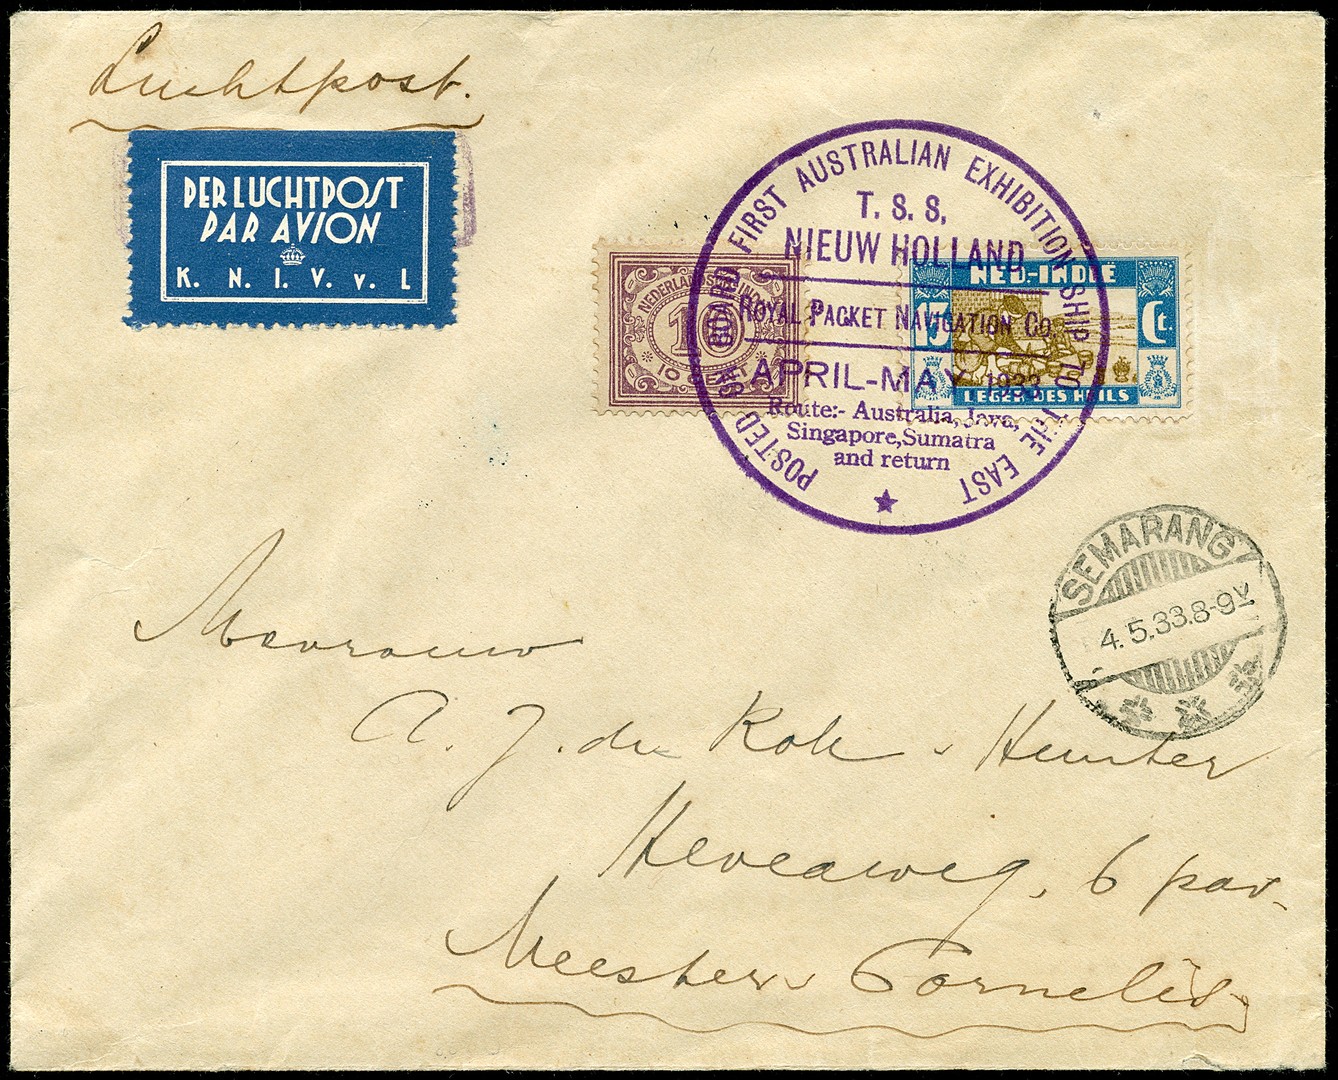 Luchtpost.
PER LUCHTPOST
PAR AVION
K. N. I. V. v. L
POSTED ON BOARD FIRST AUSTRALIAN EXHIBITION SHIP TO THE EAST
T. S. S,
NIEUW HOLLAND
ROYAL PACKET NAVIGATION Co.
APRIL-MAY 1933
Route:- Australia, Java,
Singapore, Sumatra
and return
NEDERLANDSCH-INDIË
10
10 CENT
NED-INDIË
15 Ct.
LEGER DES HEILS
SEMARANG
4.5.33.8-9V
Mevrouw
A. J. de Kok - Hunter
Heveaweg. 6 pav.
Meester Cornelis